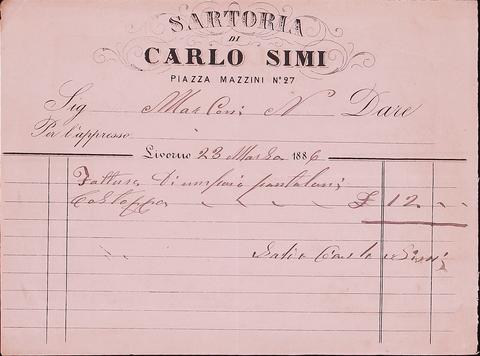 SARTORIA
DI
CARLO SIMI
PIAZZA MAZZINI Nº 27
Sig Marconi N Dare
Per l'appresso
Livorno 23 Marzo 1886
Fattura di un paio pantaloni
£ 12 " "
Saldo Carlo Simi